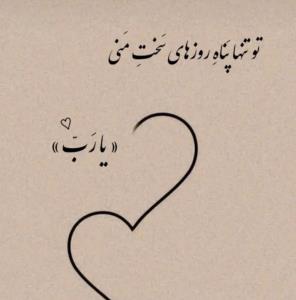 تو تنها پَناهِ روزهای سَختِ مَنی
« یا رَبّ »